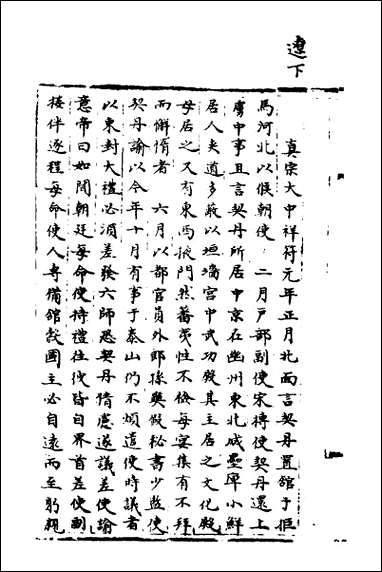 遼下
真宗大中祥符元年正月北面言契丹置舘于拒
馬河北以候朝使　二月戸部副使宋摶使契丹還上
虜中事且言契丹所居中京在幽州東北城壘卑小鮮
居人夾道多蔽以垣墻宮中武功殿其主居之文化殿
母居之又有東西掖門然蕃夷性不儉每宴集有不拜
而懈惰者　六月以都官員外郎孫奭假秘書少監使
契丹諭以今年十月有事于泰山仍不煩遣使時議者
以東封大禮必湏差發六師恐契丹隋慮遂議差使諭
意帝曰如聞朝廷每命使持禮往彼皆自界首差使副
接伴逐程每命使人專備舘穀國主必自遠而至躬親